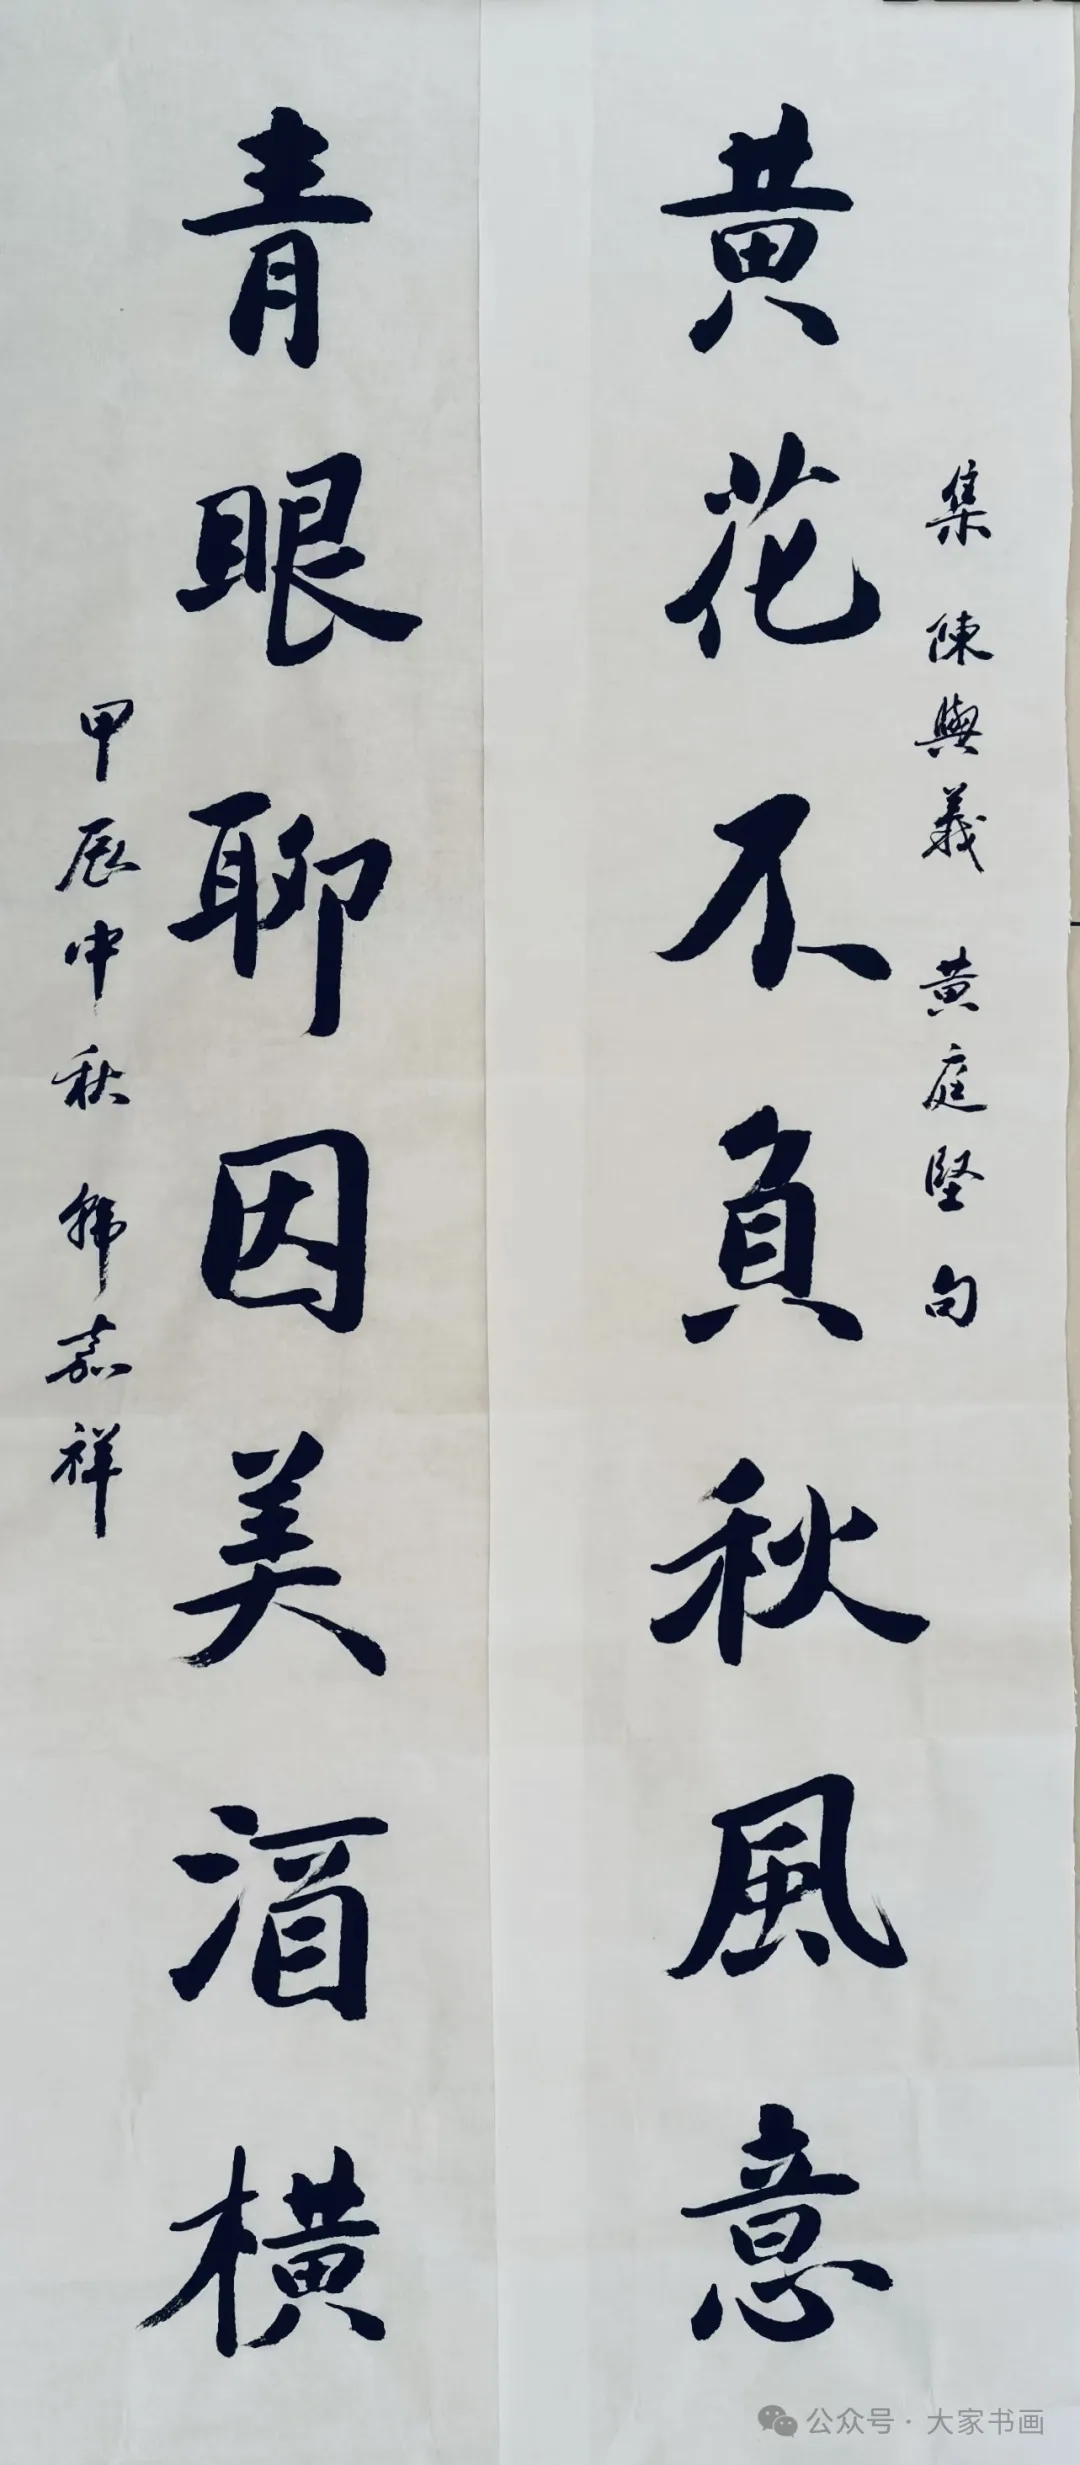 黄花不負秋風意
集陳與義黄庭堅句
青眼聊因美酒橫
甲辰中秋韩嘉祥
公众号·大家书画